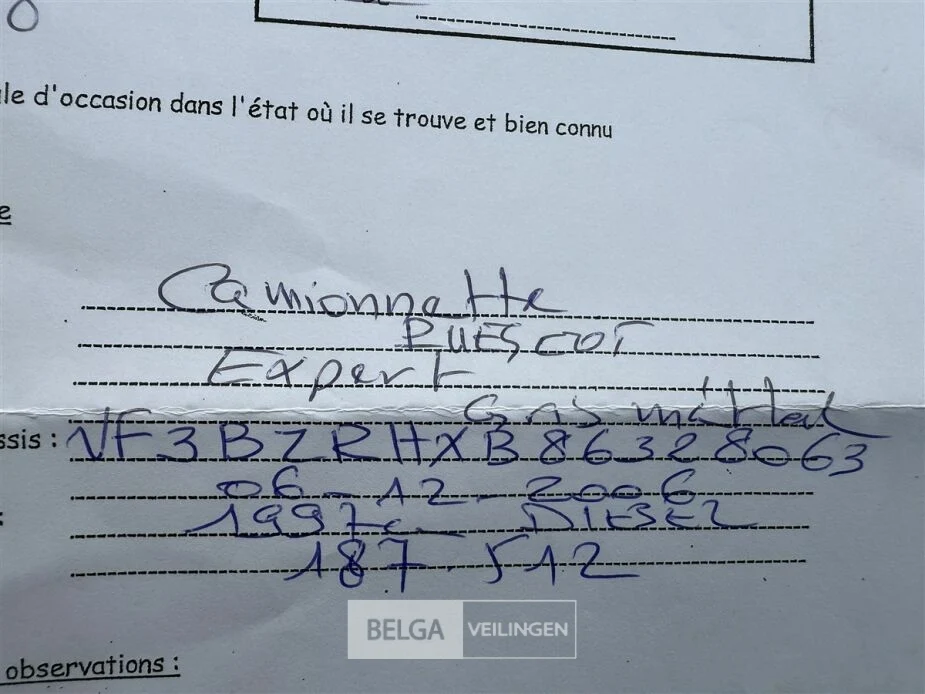 le d'occasion dans l'état où il se trouve et bien connu
e
Camionnette
PUESCOT
Expert
Gris métal
ssis : VF3BZRHXB86328063
06-12-2006
: 1997cc DIESEL
187.512
BELGA VEILINGEN
observations :